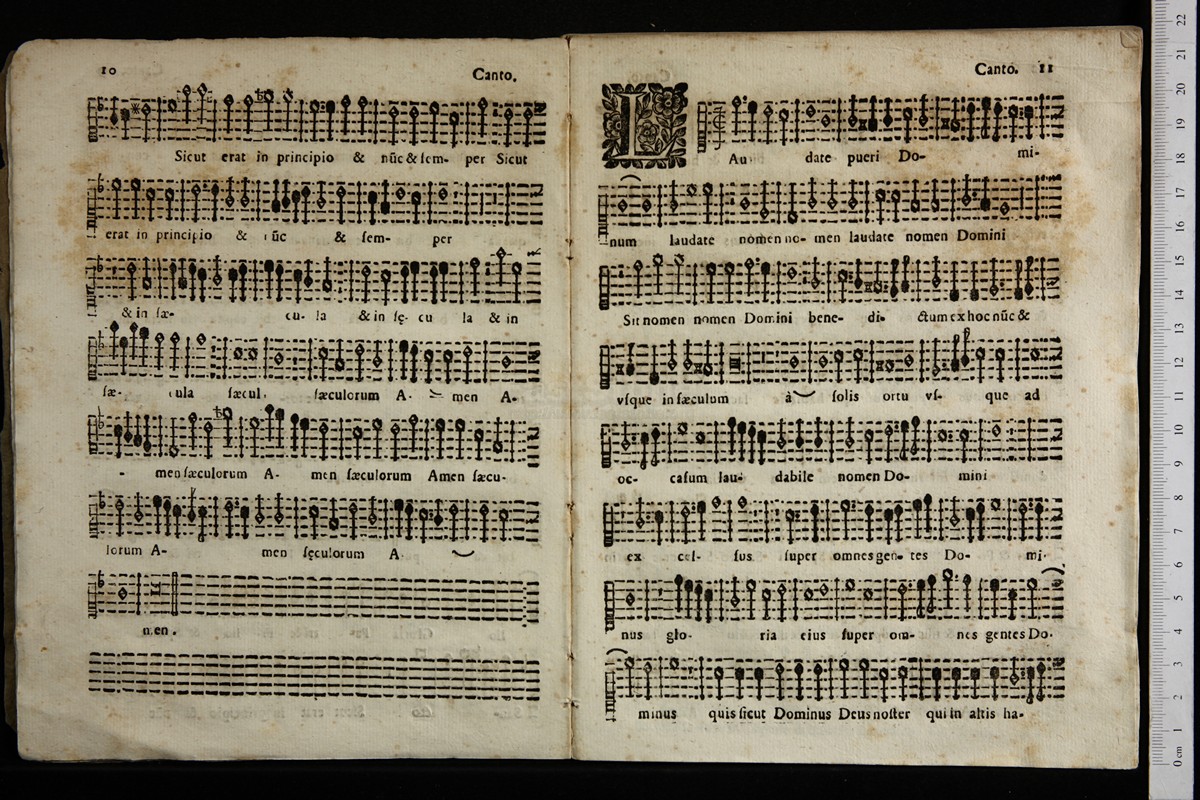 10
Canto.
Sicut erat in principio & nũc & ſem- per Sicut
erat in principio & nũc & ſem- per
& in ſæ- cu- la & in ſę- cu la & in
ſæ- cula ſæcul. ſæculorum A- men A-
- men ſæculorum A- men ſæculorum Amen ſæcu-
lorum A- men ſęculorum A
men.
Canto. 11
LAu- date pueri Do- mi-
num laudate nomen no- men laudate nomen Domini
Sit nomen nomen Domini bene- di- ctum ex hoc nũc &
vſque in ſæculum à ſolis ortu vſ- que ad
oc- caſum lau- dabile nomen Do- mini
ex cel- ſus ſuper omnes gen- tes Do- mi-
nus glo- ria eius ſuper om- nes gentes Do-
minus quis ſicut Dominus Deus noſter qui in altis ha-
0 cm 1 2 3 4 5 6 7 8 9 10 11 12 13 14 15 16 17 18 19 20 21 22